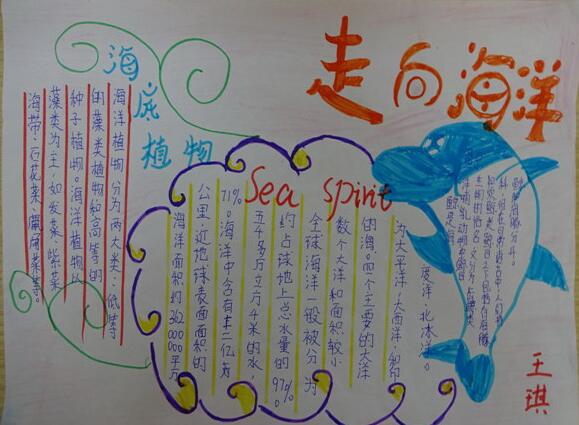 走向海洋
海底植物
海洋植物分为两大类:低等
的藻类植物和高等的
种子植物。海洋植物以
藻类为主,如发菜、紫菜
海带、石花菜、鹧鸪菜等。
Sea spirit
海洋面积约362000000平方
公里,近地球表面面积的
71%。海洋中含有十三亿
五千多万立方千米的水,
约占球地上总水量的97%
全球海洋一般被分为
数个大洋和面积较小
的海。四个主要的大洋
为太平洋、大西洋、和印
度洋、北冰洋。
王琪